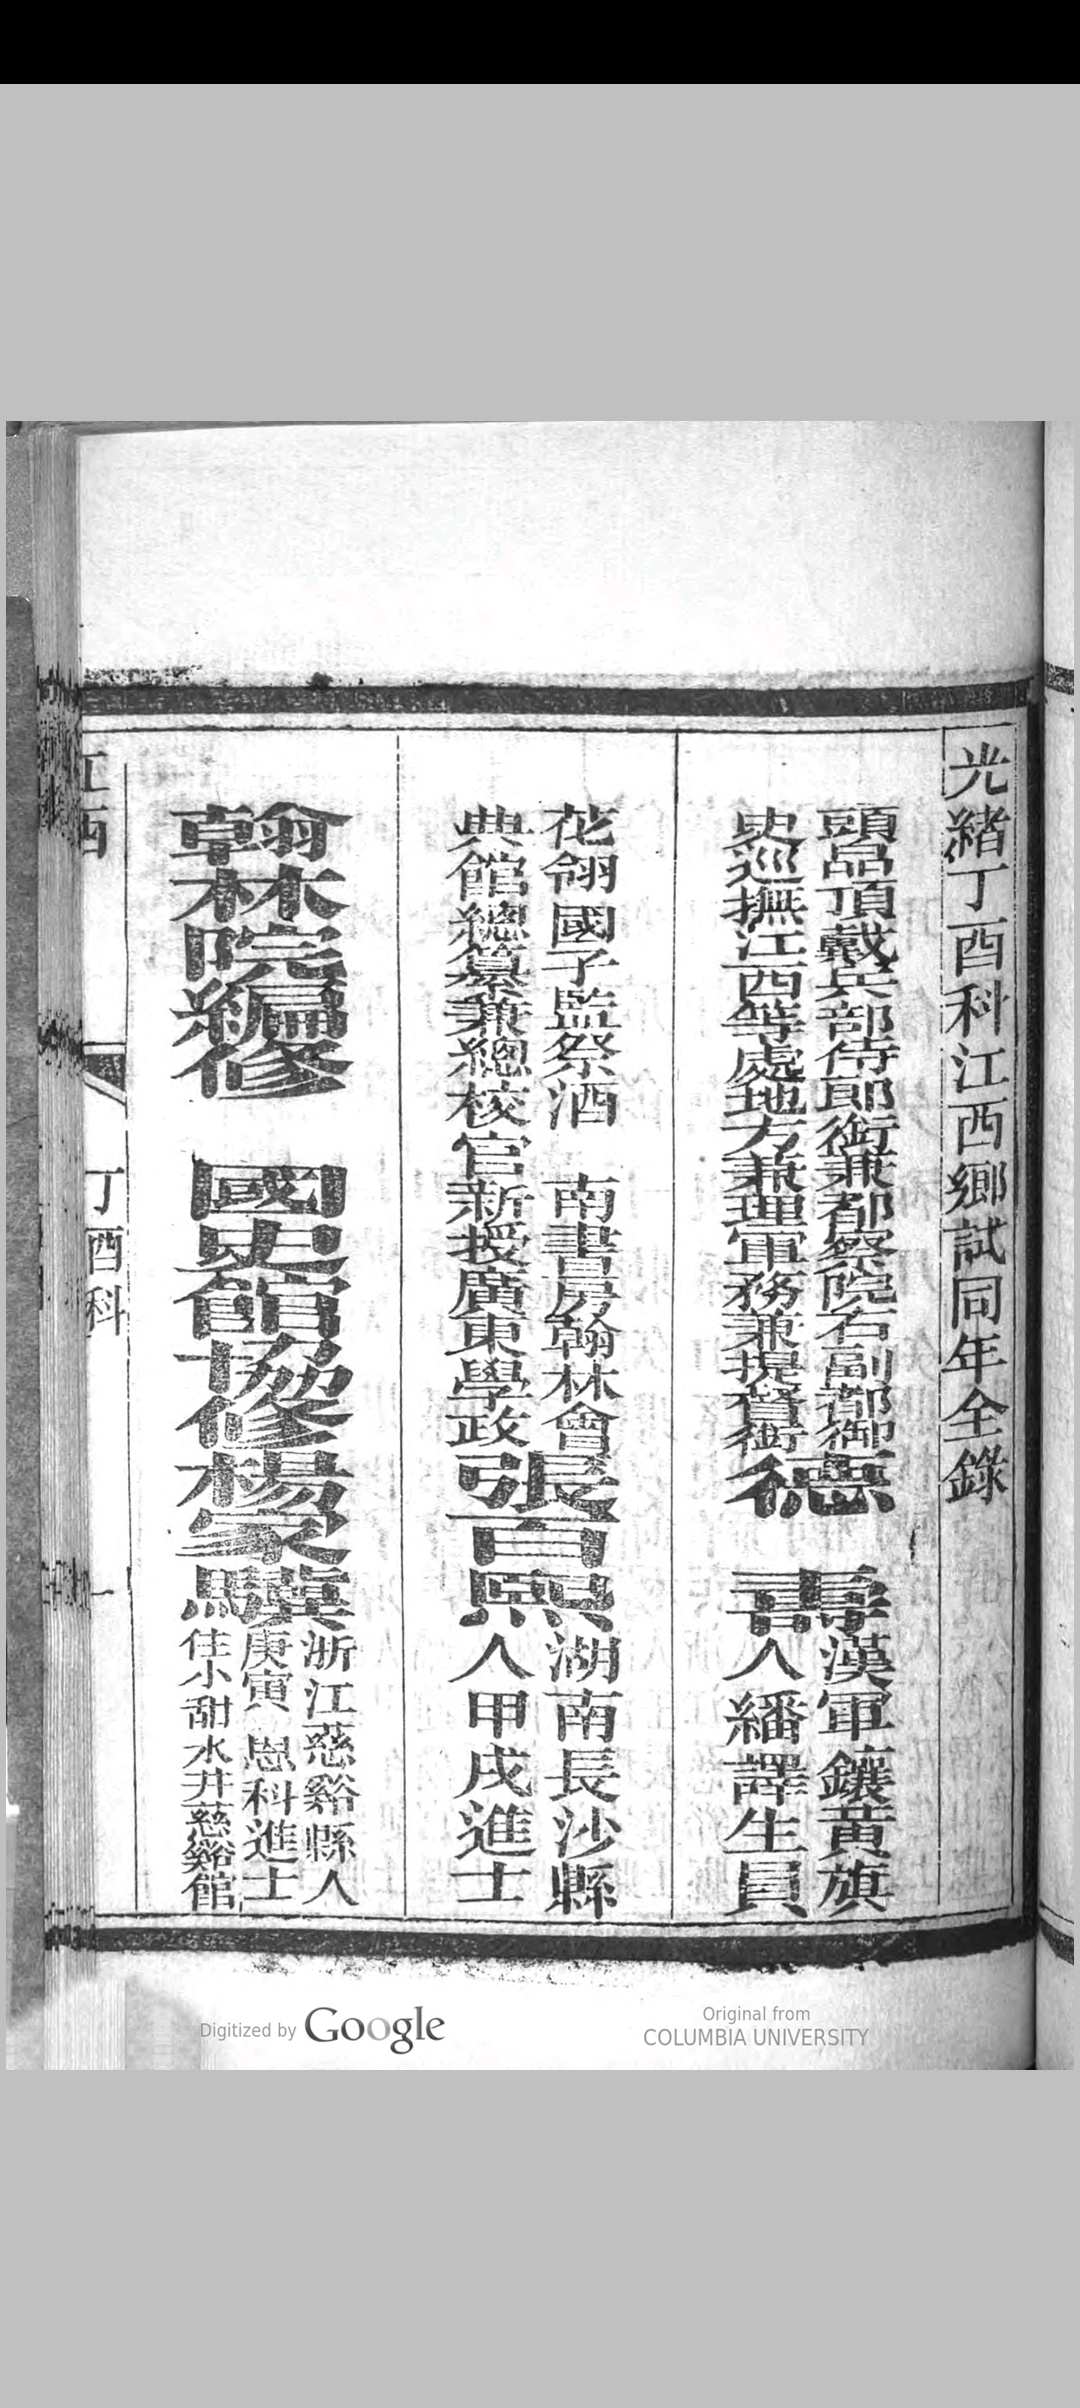 光緒丁酉科江西鄉試同年全錄
頭品頂戴兵部侍郎銜兼都察院右副都御
史巡撫江西等處地方兼理軍務兼提督銜
德壽
漢軍鑲黃旗
人繙譯生員
花翎國子監祭酒 南書房翰林會
典館總纂兼總校官新授廣東學政
張百熙
湖南長沙縣
人甲戌進士
翰林院編修 國史館協修楊家驥
浙江慈谿縣人
庚寅 恩科進士
住小甜水井慈谿館
江西 丁酉科 一
Digitized by Google
Original from
COLUMBIA UNIVERSITY